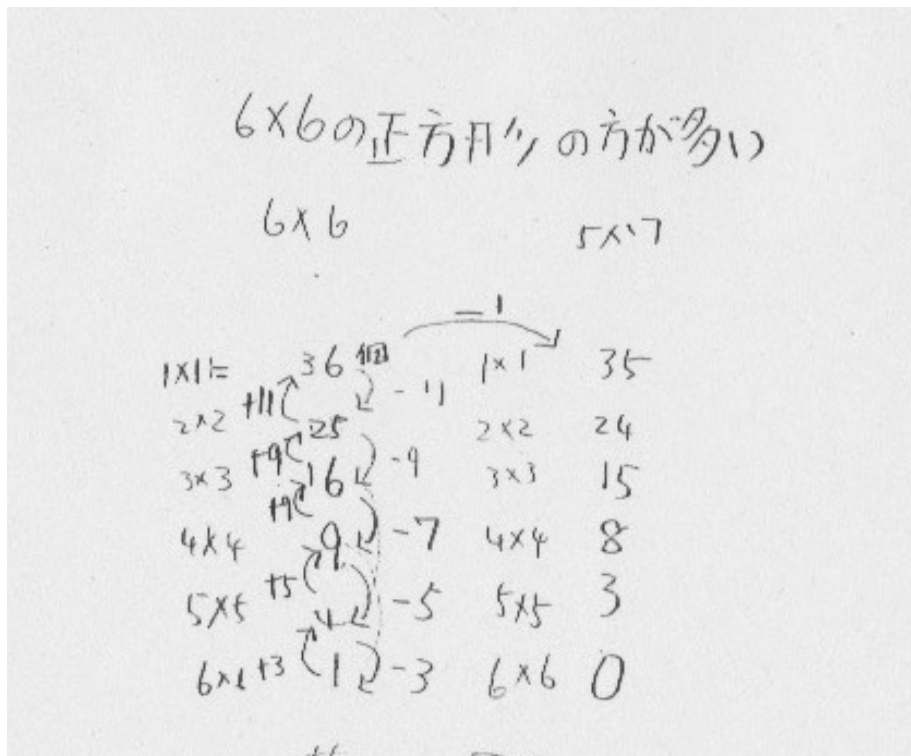 6×6の正方形の方が多い
6×6 5×7
-1
1×1= 36個 -11 1×1 35
2×2 +11 25 2×2 24
3×3 +9 16 -9 3×3 15
4×4 9 -7 4×4 8
5×5 +5 4 -5 5×5 3
+3 1 -3 6×6 0